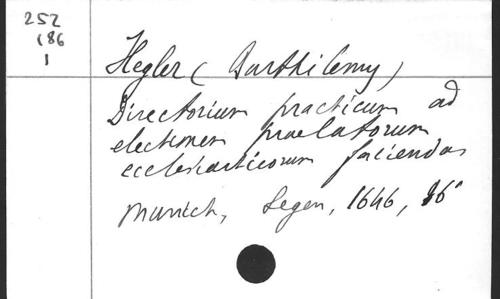 252
186
1
Hegler (Barthilemy)
Directorium practicum ad
electionem praelatorum
ecclesiasticorum faciendas
Munich, Segen, 1646, 16°